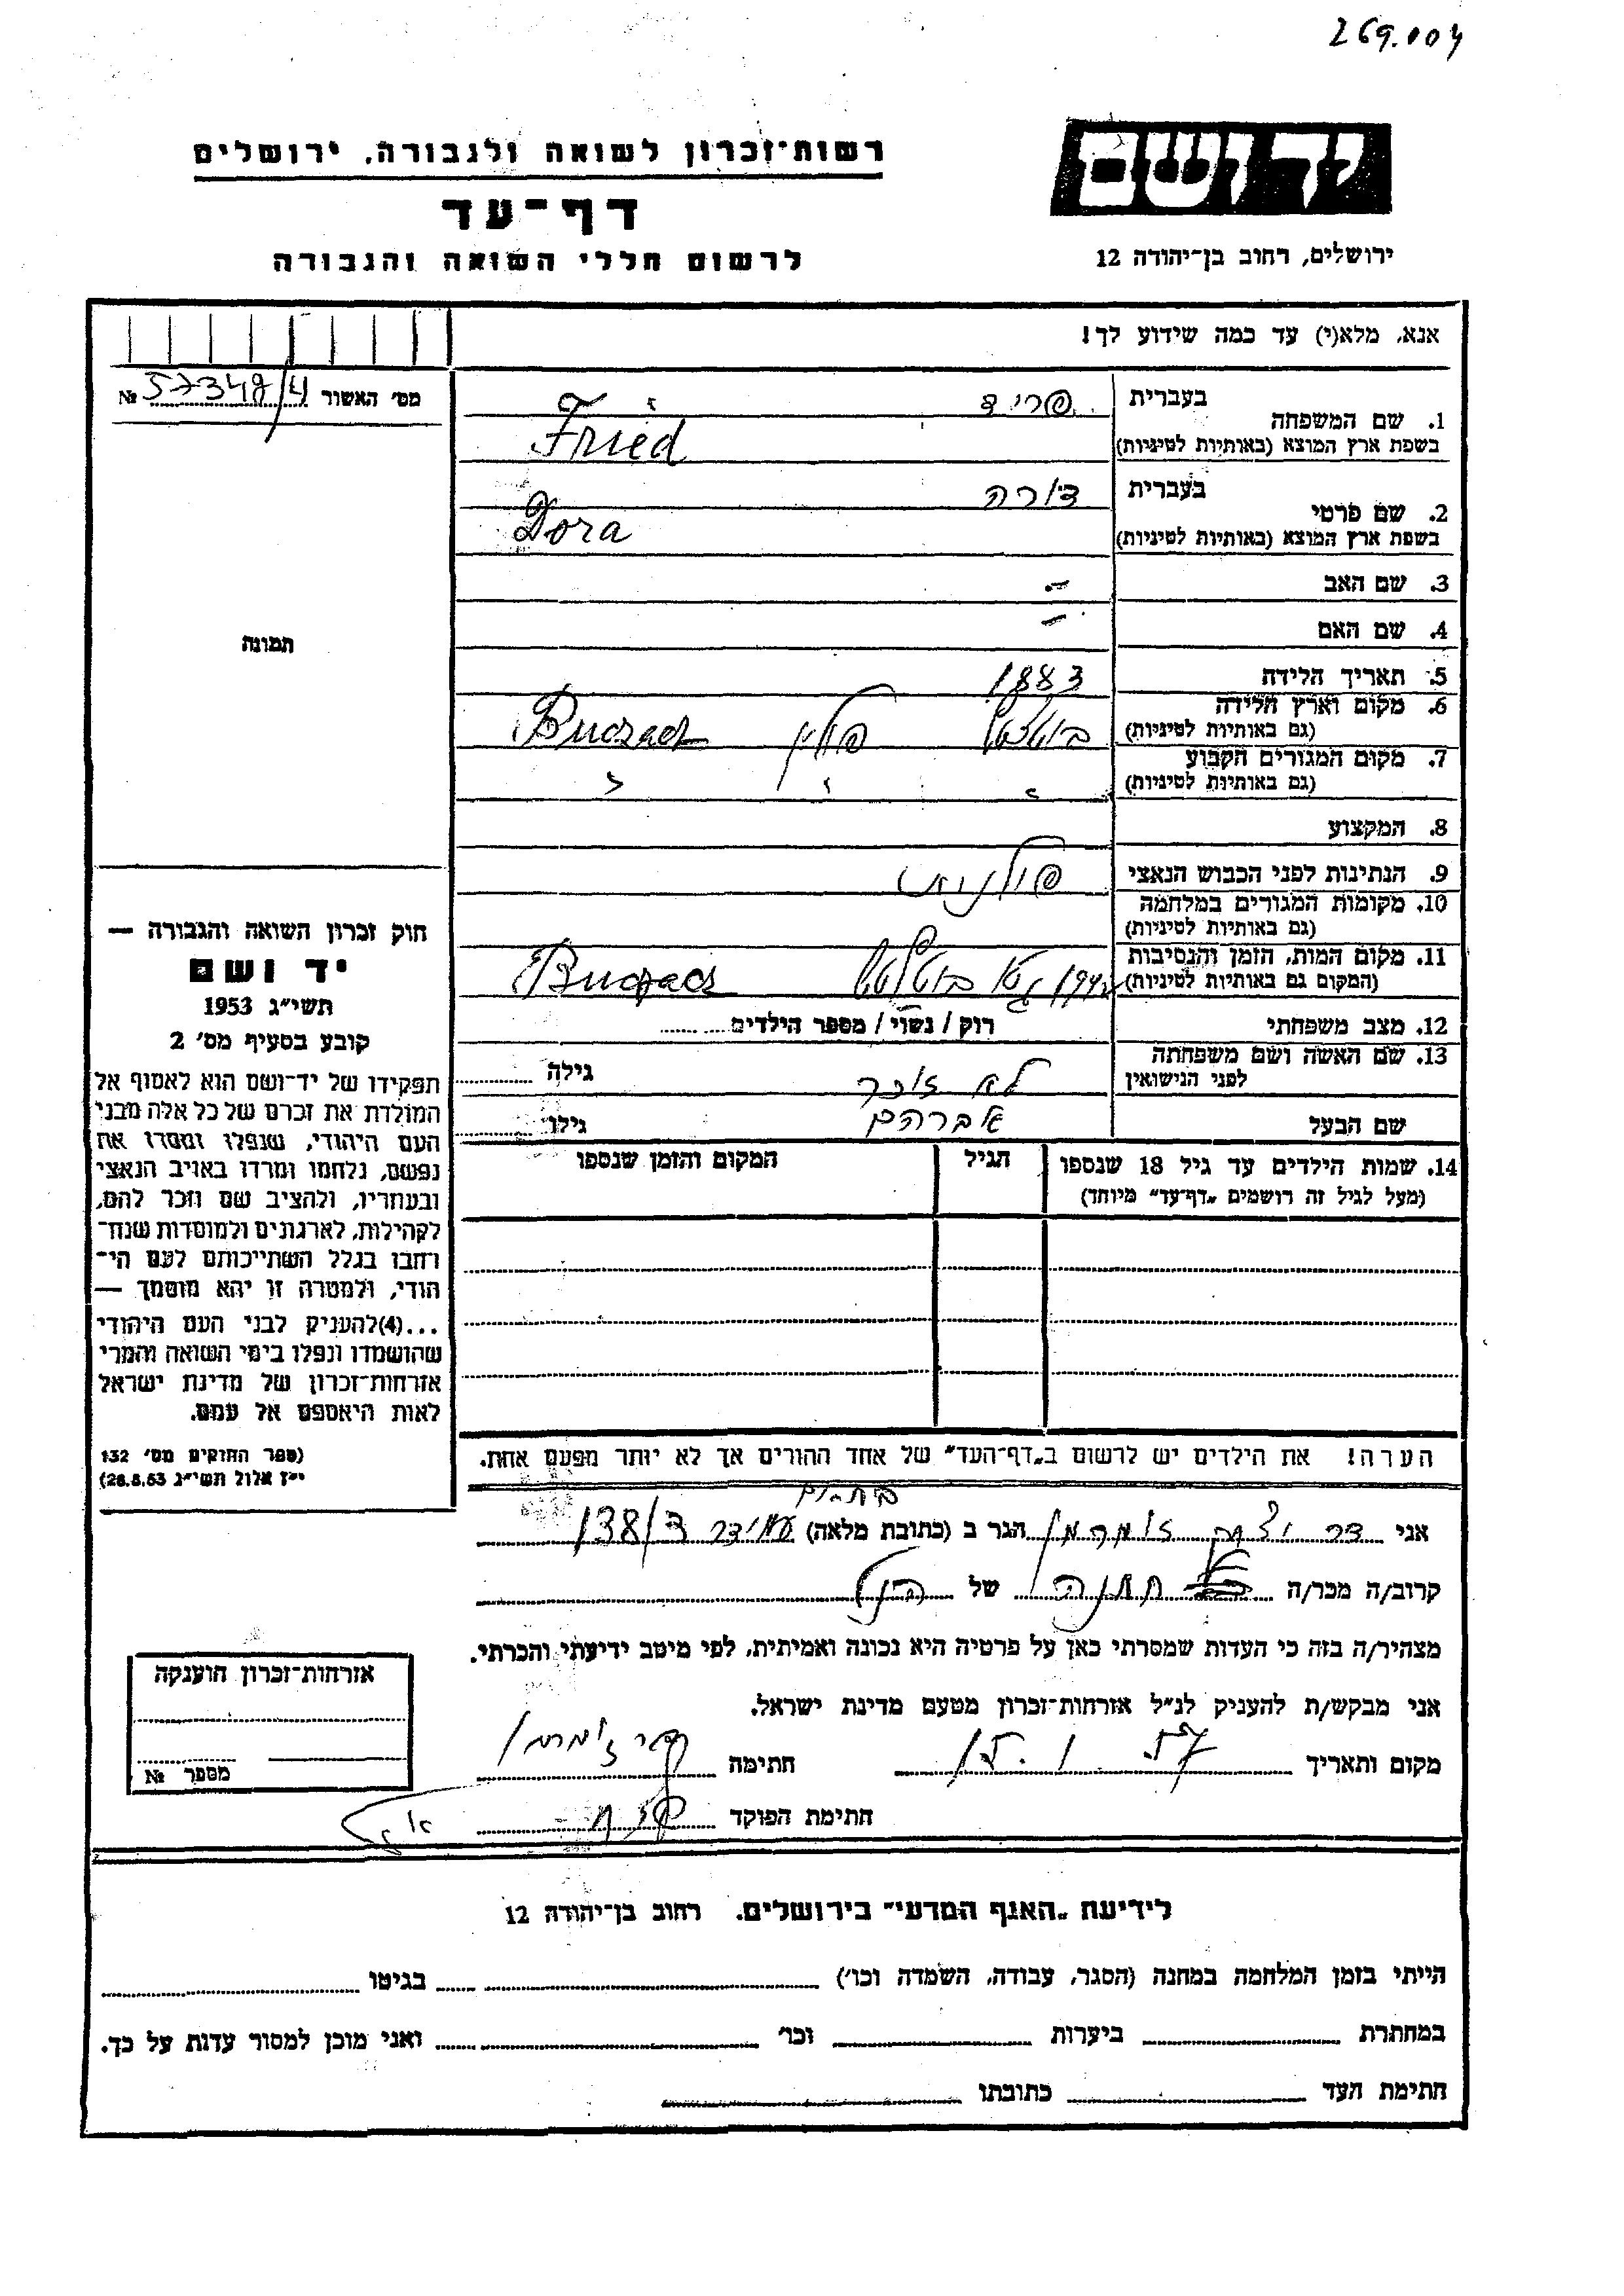 269.004
יד ושם
ירושלים, רחוב בן־יהודה 12
רשות־זכרון לשואה ולגבורה, ירושלים
דף־עד
לרשום חללי השואה והגבורה
אנא, מלא(י) עד כמה שידוע לך!
מס׳ האשור 57348/4 №
תמונה
1. שם המשפחה
בעברית פריד
בשפת ארץ המוצא (באותיות לטיניות) Fried
2. שם פרטי
בעברית דורה
בשפת ארץ המוצא (באותיות לטיניות) Dora
3. שם האב -
4. שם האם -
5. תאריך הלידה 1883
6. מקום וארץ הלידה
(גם באותיות לטיניות) פולין Buczacz
7. מקום המגורים הקבוע
(גם באותיות לטיניות)
8. המקצוע
9. הנתינות לפני הכבוש הנאצי פולנית
10. מקומות המגורים במלחמה
(גם באותיות לטיניות)
11. מקום המות, הזמן והנסיבות
(המקום גם באותיות לטיניות) גטו Buczacz
12. מצב משפחתי רוק / נשוי / מספר הילדים
13. שם האשה ושם משפחתה
לפני הנישואין לא זוכר גילה
שם הבעל אברהם גילו
14. שמות הילדים עד גיל 18 שנספו
(מעל לגיל זה רושמים „דף־עד״ מיוחד)
הגיל
המקום והזמן שנספו
הערה! את הילדים יש לרשום ב„דף־העד״ של אחד ההורים אך לא יותר מפעם אחת.
חוק זכרון השואה והגבורה —
יד ושם
תשי״ג 1953
קובע בסעיף מס׳ 2
תפקידו של יד־ושם הוא לאסוף אל
המולדת את זכרם של כל אלה מבני
העם היהודי, שנפלו ומסרו את
נפשם, נלחמו ומרדו באויב הנאצי
ובעוזריו, ולהציב שם וזכר להם,
לקהילות, לארגונים ולמוסדות שנח־
רבו בגלל השתייכותם לעם הי־
הודי, ולמטרה זו יהא מוסמך —
...(4)להעניק לבני העם היהודי
שהושמדו ונפלו בימי השואה והמרי
אזרחות־זכרון של מדינת ישראל
לאות היאספם אל עמם.
(ספר החוקים מס׳ 132
י״ז אלול תשי״ג 28.8.53)
אני הגר ב (כתובת מלאה) עמידר 138/3
קרוב/ה מכר/ה חתנה של הנ״ל
מצהיר/ה בזה כי העדות שמסרתי כאן על פרטיה היא נכונה ואמיתית, לפי מיטב ידיעתי והכרתי.
אני מבקש/ת להעניק לנ״ל אזרחות־זכרון מטעם מדינת ישראל.
מקום ותאריך חתימה
חתימת הפוקד
אזרחות־זכרון הוענקה
מספר №
לידיעת „האגף המדעי״ בירושלים, רחוב בן־יהודה 12
הייתי בזמן המלחמה במחנה (הסגר, עבודה, השמדה וכו׳) בגיטו
במחתרת ביערות וכו׳ ואני מוכן למסור עדות על כך.
חתימת העד כתובתו